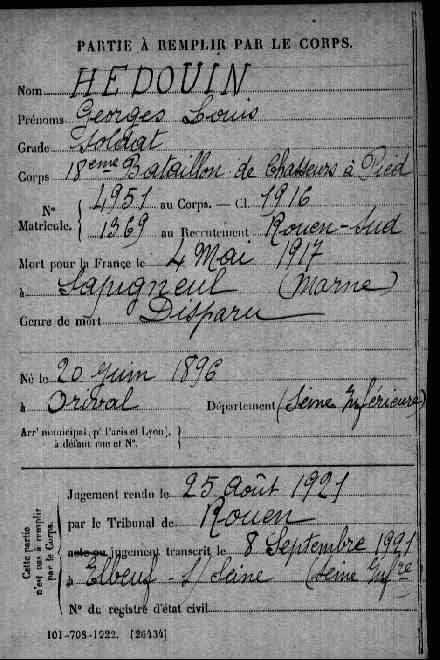 PARTIE À REMPLIR PAR LE CORPS.
Nom HEDOUIN
Prénoms Georges Louis
Grade Soldat
Corps 18eme Bataillon de Chasseurs à Pied
N° Matricule. { 4951 au Corps. — Cl. 1916
1369 au Recrutement Rouen-Sud
Mort pour la France le 4 Mai 1917
à Sapigneul (Marne)
Genre de mort Disparu
Né le 20 Juin 1896
à Orival Département (Seine Inférieure)
Arrt municipal (pr Paris et Lyon), }
à défaut rue et N°.
Cette partie n'est pas à remplir par le Corps.
Jugement rendu le 25 Août 1921
par le Tribunal de Rouen
acte ou jugement transcrit le 8 Septembre 1921
à Elbeuf-s/Seine (Seine Infre)
N° du registre d'état civil
101-708-1922. [26434]